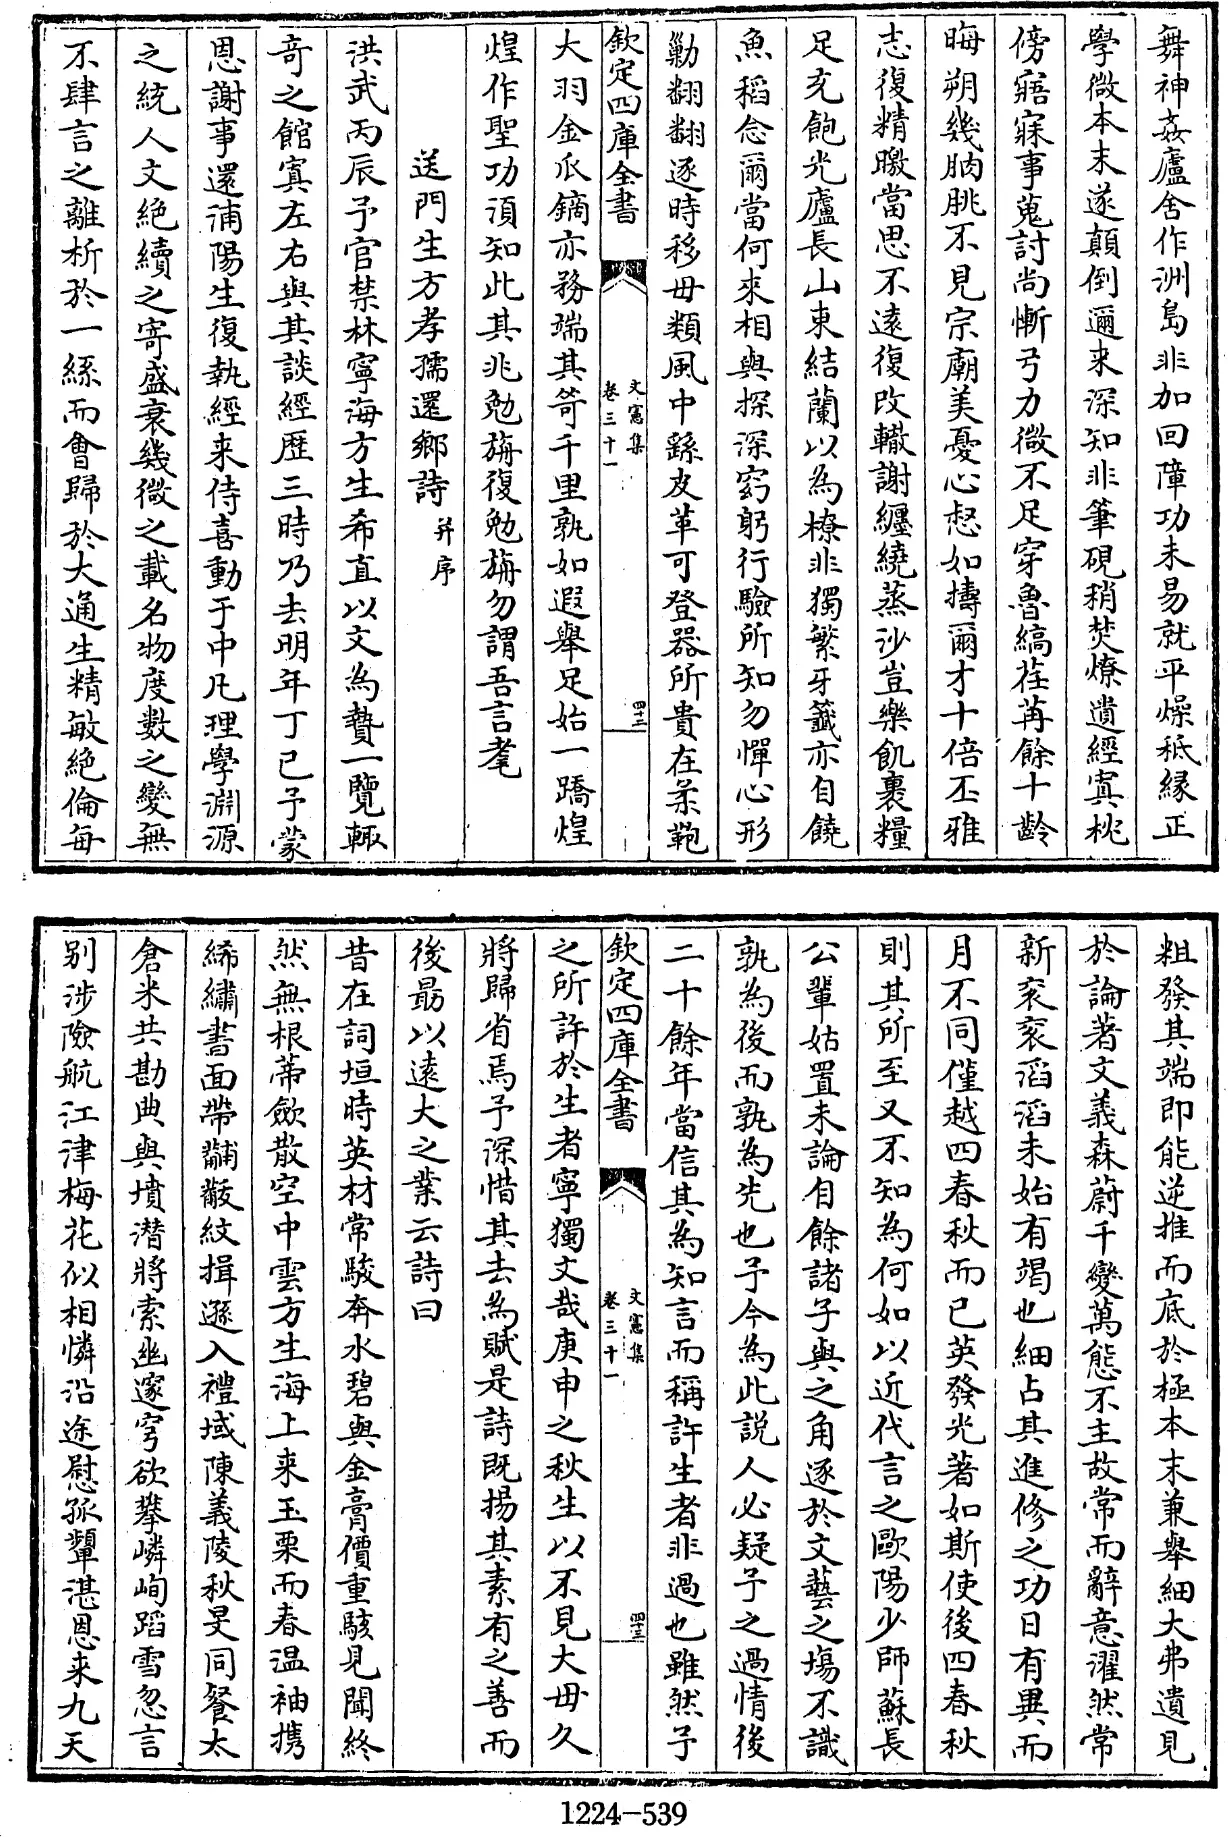 舞神姦廬舍作洲島非加回障功未易就平燥秪縁正
學微本末遂顛倒邇来深知非筆硯稍焚燎遺經寘枕
傍寤寐事蒐討尚慚弓力微不足穿魯縞荏苒餘十齡
晦朔幾朒朓不見宗廟美憂心惄如擣爾才十倍丕雅
志復精曒當思不遠復改轍謝纏繞蒸沙豈樂飢裹糧
足充飽光廬長山東結蘭以為橑非獨繁牙籤亦自饒
魚稻念爾當何来相與探深窈躬行驗所知勿憚心形
勦翻翻逐時移毋類風中纛皮革可登器所貴在柔鞄
欽定四庫全書
文憲集
卷三十一
四十二
大羽金爪鏑亦務端其笴千里孰如遐舉足始一蹻煌
煌作聖功須知此其兆勉旃復勉旃勿謂吾言耄
送門生方孝孺還鄉詩 并序
洪武丙辰予官禁林寧海方生希直以文為贄一覽輒
竒之館寘左右與其談經歴三時乃去明年丁已予蒙
恩謝事還浦陽生復執經来侍喜動于中凡理學淵源
之統人文絶續之寄盛衰幾微之載名物度數之變無
不肆言之離析於一絲而會歸於大通生精敏絶倫每
粗發其端即能逆推而底於極本末兼舉細大弗遺見
於論著文義森蔚千變萬態不主故常而辭意濯然常
新衮衮滔滔未始有竭也細占其進修之功日有異而
月不同僅越四春秋而已英發光著如斯使後四春秋
則其所至又不知為何如以近代言之歐陽少師蘇長
公輩姑置未論自餘諸子與之角逐於文藝之塲不識
孰為後而孰為先也予今為此説人必疑予之過情後
二十餘年當信其為知言而稱許生者非過也雖然予
欽定四庫全書
文憲集
卷三十一
四十三
之所許於生者寧獨文哉庚申之秋生以不見大母久
將歸省焉予深惜其去為賦是詩既揚其素有之善而
後勗以遠大之業云詩曰
昔在詞垣時英材常駿奔水碧與金膏價重駭見聞終
然無根蒂歛散空中雲方生海上来玉栗而春温袖携
絺繡書面帶黼黻紋揖遜入禮域陳義陵秋旻同餐太
倉米共勘典與墳潛將索幽邃穹欲攀嶙峋蹈雪忽言
别涉險航江津梅花似相憐沿途慰孤顰湛恩来九天
1224-539